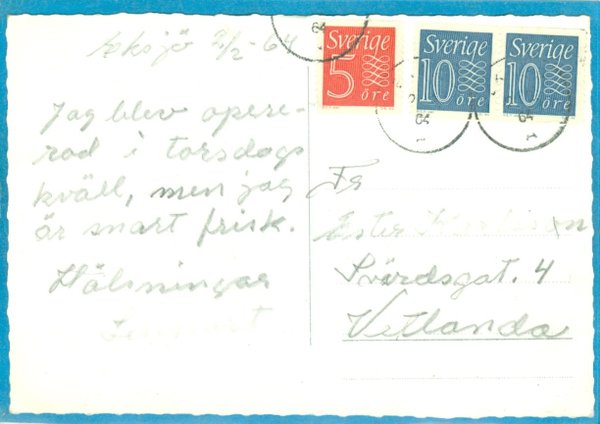 Eksjö 7/2 - 64
Jag blev opere-
rad i torsdags
kväll, men jag
är snart frisk.
Hälsningar
Sverige
5
öre
Sverige
10
öre
Sverige
10
öre
64
64
64
Ester
Svärdsgat. 4
Vetlanda